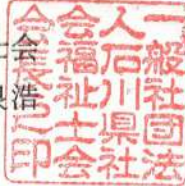 会
浩
一般社団法
人石川県社
会福祉士会
会長之印